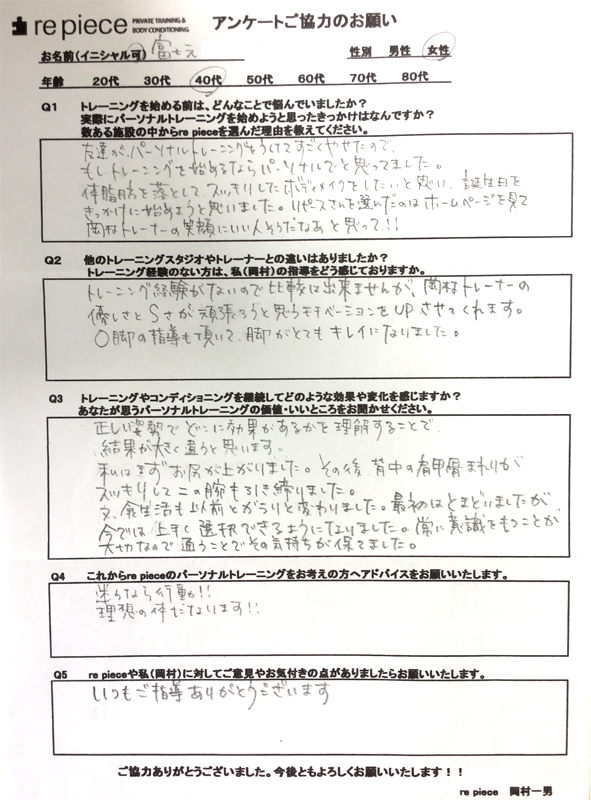 re piece PRIVATE TRAINING & BODY CONDITIONING アンケートご協力のお願い
お名前(イニシャル可) 富士え 性別 男性 女性
年齢 20代 30代 40代 50代 60代 70代 80代
Q1 トレーニングを始める前は、どんなことで悩んでいましたか?
実際にパーソナルトレーニングを始めようと思ったきっかけはなんですか?
数ある施設の中からre pieceを選んだ理由を教えてください。
友達が、パーソナルトレーニングをうけてすごくやせたので、
もし、トレーニングを始めるならパーソナルでと思ってました。
体脂肪を落として、スッキリしたボディメイクをしたいと思い、誕生日を
きっかけに始めようと思いました。リピースさんを選んだのはホームページを見て
岡村トレーナーの笑顔にいい人そうだなあと思って!!
Q2 他のトレーニングスタジオやトレーナーとの違いはありましたか?
トレーニング経験のない方は、私(岡村)の指導をどう感じておりますか。
トレーニング経験がないので比較は出来ませんが、岡村トレーナーの
優しさとSさが頑張ろうと思うモチベーションをUPさせてくれます。
○脚の指導も頂いて、脚がとてもキレイになりました。
Q3 トレーニングやコンディショニングを継続してどのような効果や変化を感じますか?
あなたが思うパーソナルトレーニングの価値・いいところをお聞かせください。
正しい姿勢でどこに効果があるかを理解することで、
結果が大きく違うと思います。
私はまずお尻が上がりました。その後、背中の肩甲骨まわりが
スッキリして二の腕も引き締りました。
又、食生活も以前とがらりと変わりました。最初はとまどいましたが
今では上手く選択できるようになりました。常に意識をもつことが
大切なので通うことでその気持ちが保てました。
Q4 これからre pieceのパーソナルトレーニングをお考えの方へアドバイスをお願いいたします。
迷うなら行動!!
理想の体になります!!
Q5 re pieceや私(岡村)に対してご意見やお気付きの点がありましたらお願いいたします。
いつもご指導ありがとうございます
ご協力ありがとうございました。今後ともよろしくお願いいたします!!
re piece 岡村一男